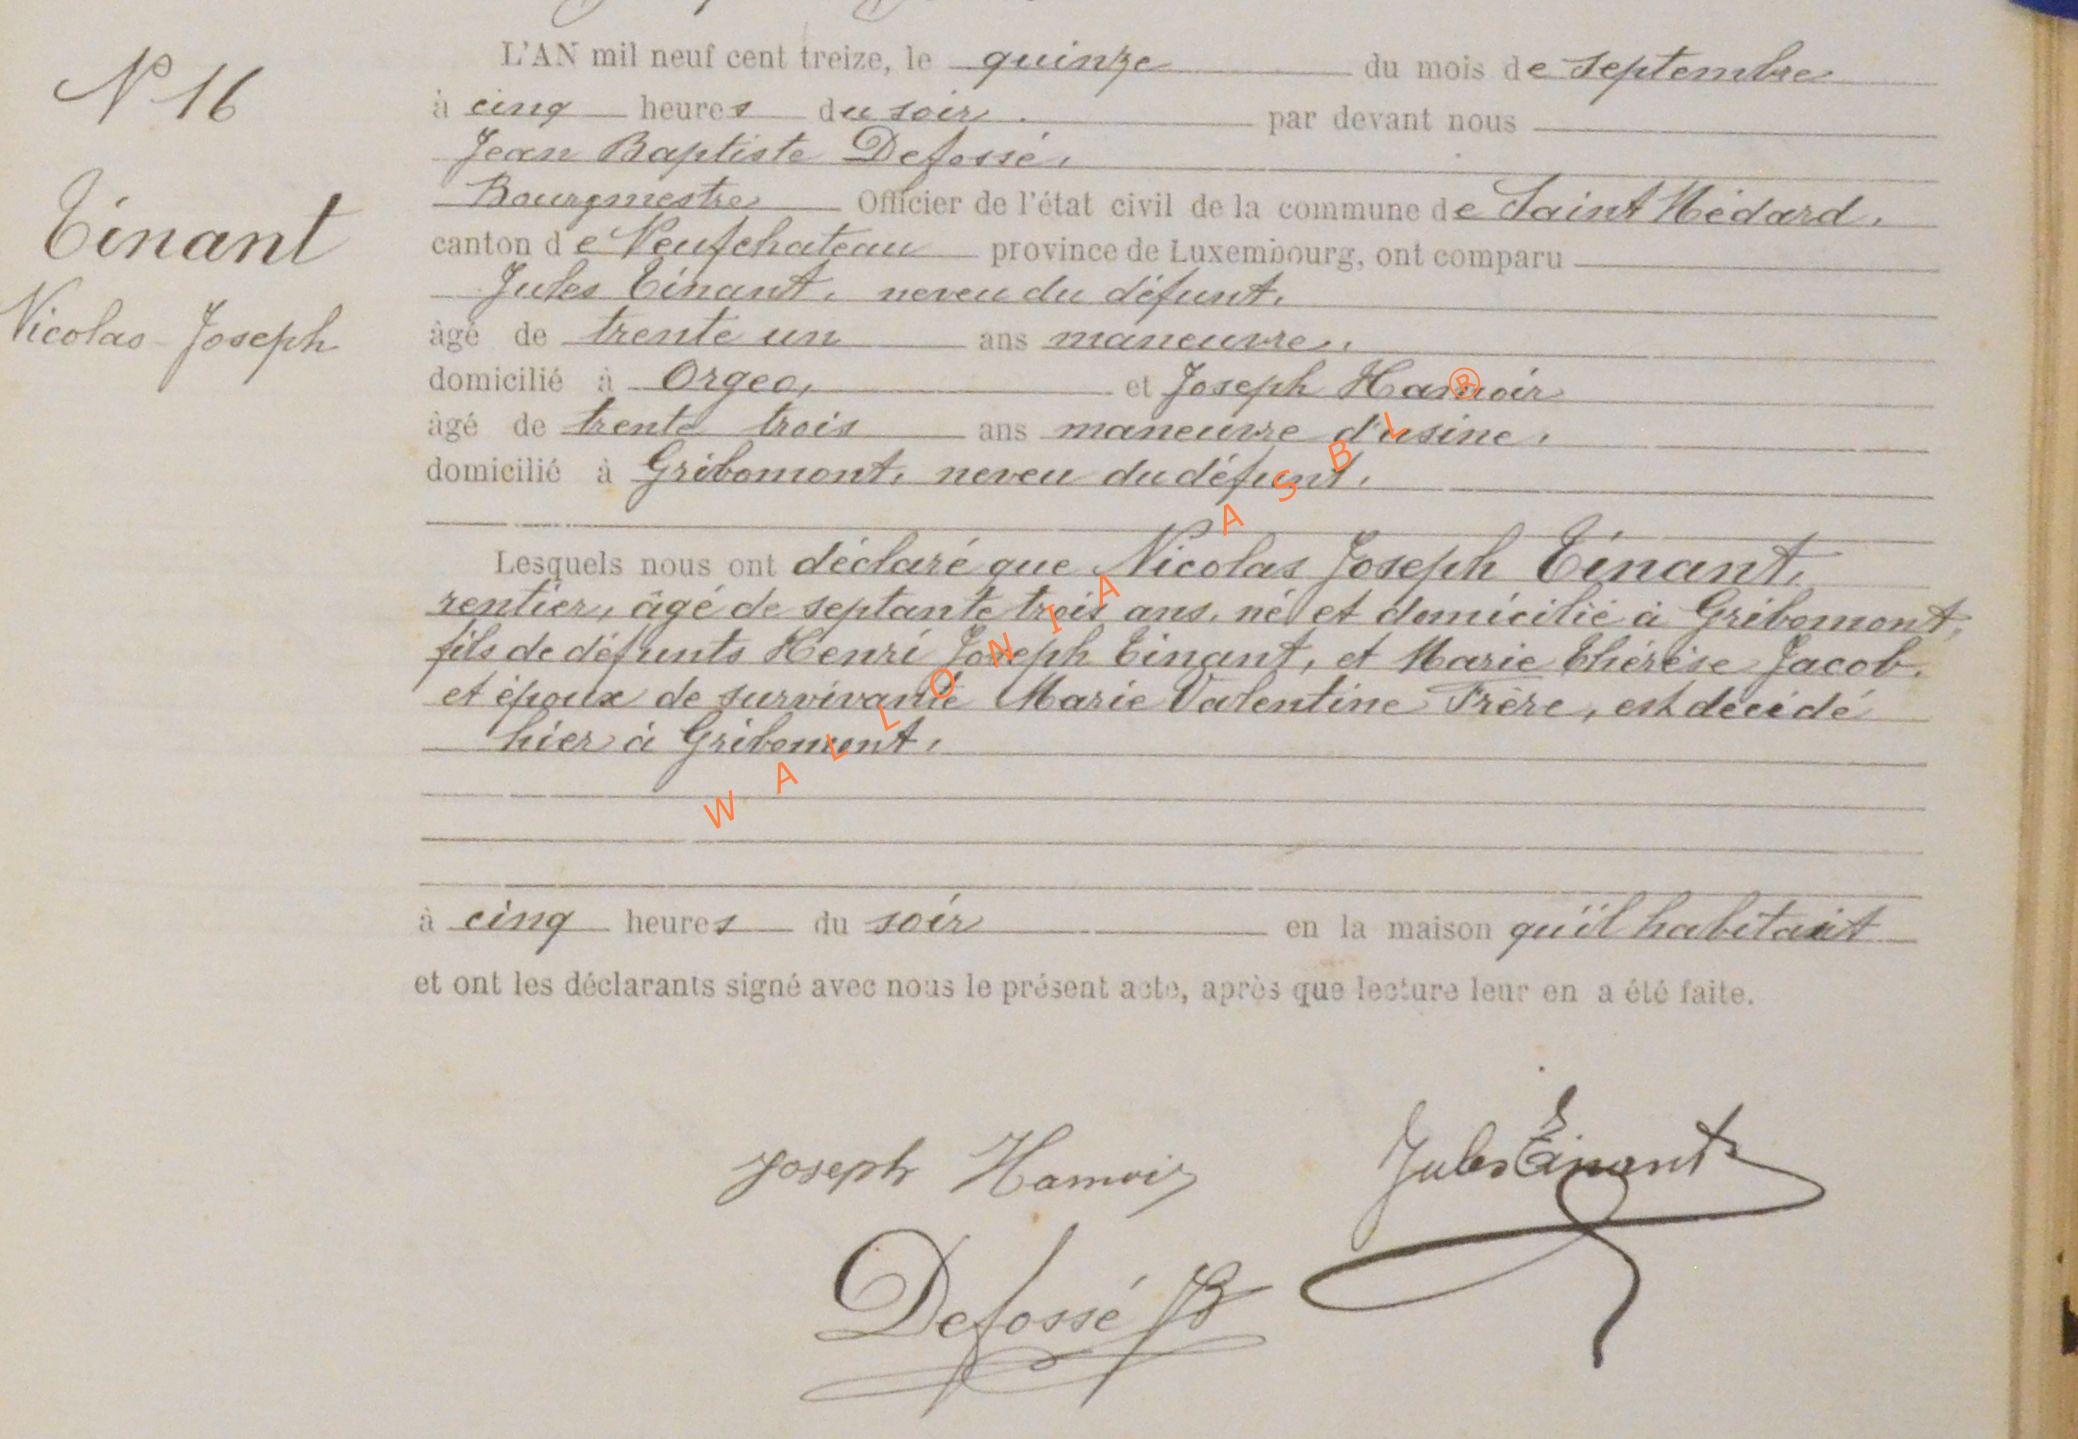 N° 16
Tinant
Nicolas-Joseph
L'AN mil neuf cent treize, le quinze du mois de Septembre
à cinq heures du soir. par devant nous
Jean Baptiste Defossé,
Bourgmestre Officier de l'état civil de la commune de Saint Médard,
canton de Neufchateau province de Luxembourg, ont comparu
Jules Tinant, neveu du défunt,
âgé de trente un ans maneuvre,
domicilié à Orgeo, et Joseph Hamoir
âgé de trente trois ans maneuvre d'usine,
domicilié à Gribomont, neveu du défunt,
Lesquels nous ont déclaré que Nicolas Joseph Tinant,
rentier, âgé de septante trois ans, né et domicilié à Gribomont,
fils de défunts Henri Joseph Tinant, et Marie Thérèse Jacob,
et époux de survivante Marie Valentine Frère, est décidé
hier à Gribomont,
à cinq heures du soir en la maison qu'il habitait
et ont les déclarants signé avec nous le présent acte, après que lecture leur en a été faite.
Joseph Hamoir
Jules Tinant
Defossé JB
WALLONIA ASBL ®